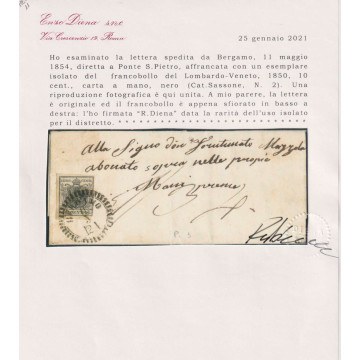 Enzo Diena s.n.c.
Via Crescenzio 19 Roma
25 gennaio 2021
Ho esaminato la lettera spedita da Bergamo, 11 maggio
1854, diretta a Ponte S.Pietro, affrancata con un esemplare
isolato del francobollo del Lombardo-Veneto, 1850, 10
cent., carta a mano, nero (Cat.Sassone, N. 2). Una
riproduzione fotografica è qui unita. A mio parere, la lettera
è originale ed il francobollo è appena sfiorato in basso a
destra: l'ho firmata "R.Diena" data la rarità dell'uso isolato
per il distretto.
Alla Signo don Fortunato Mazzola
abonato sopra nelle proprie
Mani preme